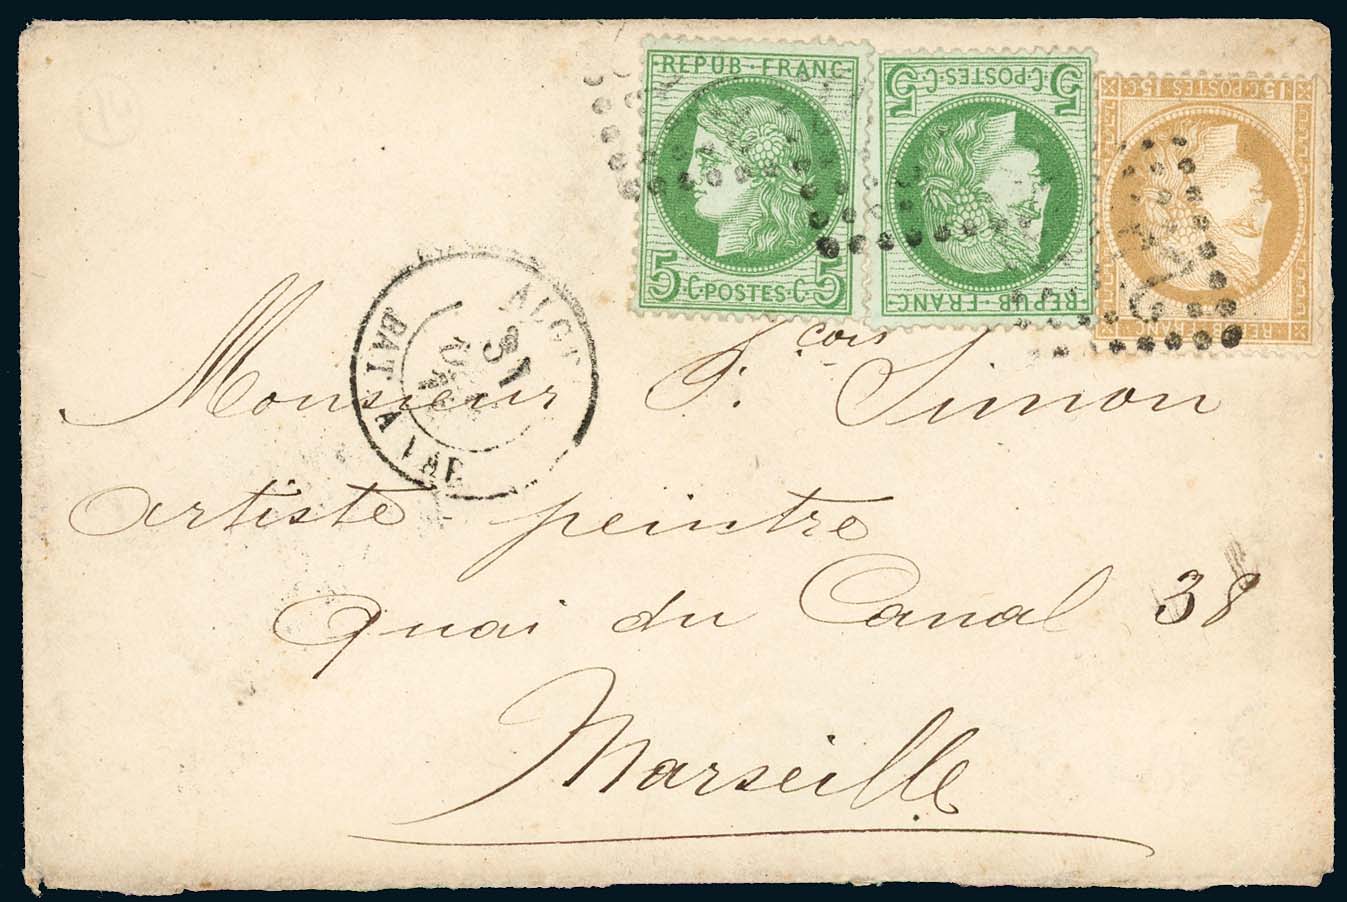 REPUB·FRANC
5 C·POSTES·C· 5
5 C·POSTES·C· 5
REPUB·FRANC
15 C POSTES 15 C
REPUB FRANC
BAT. A
Monsieur F.cois Simon
artiste peintre
Quai du Canal 38
Marseille